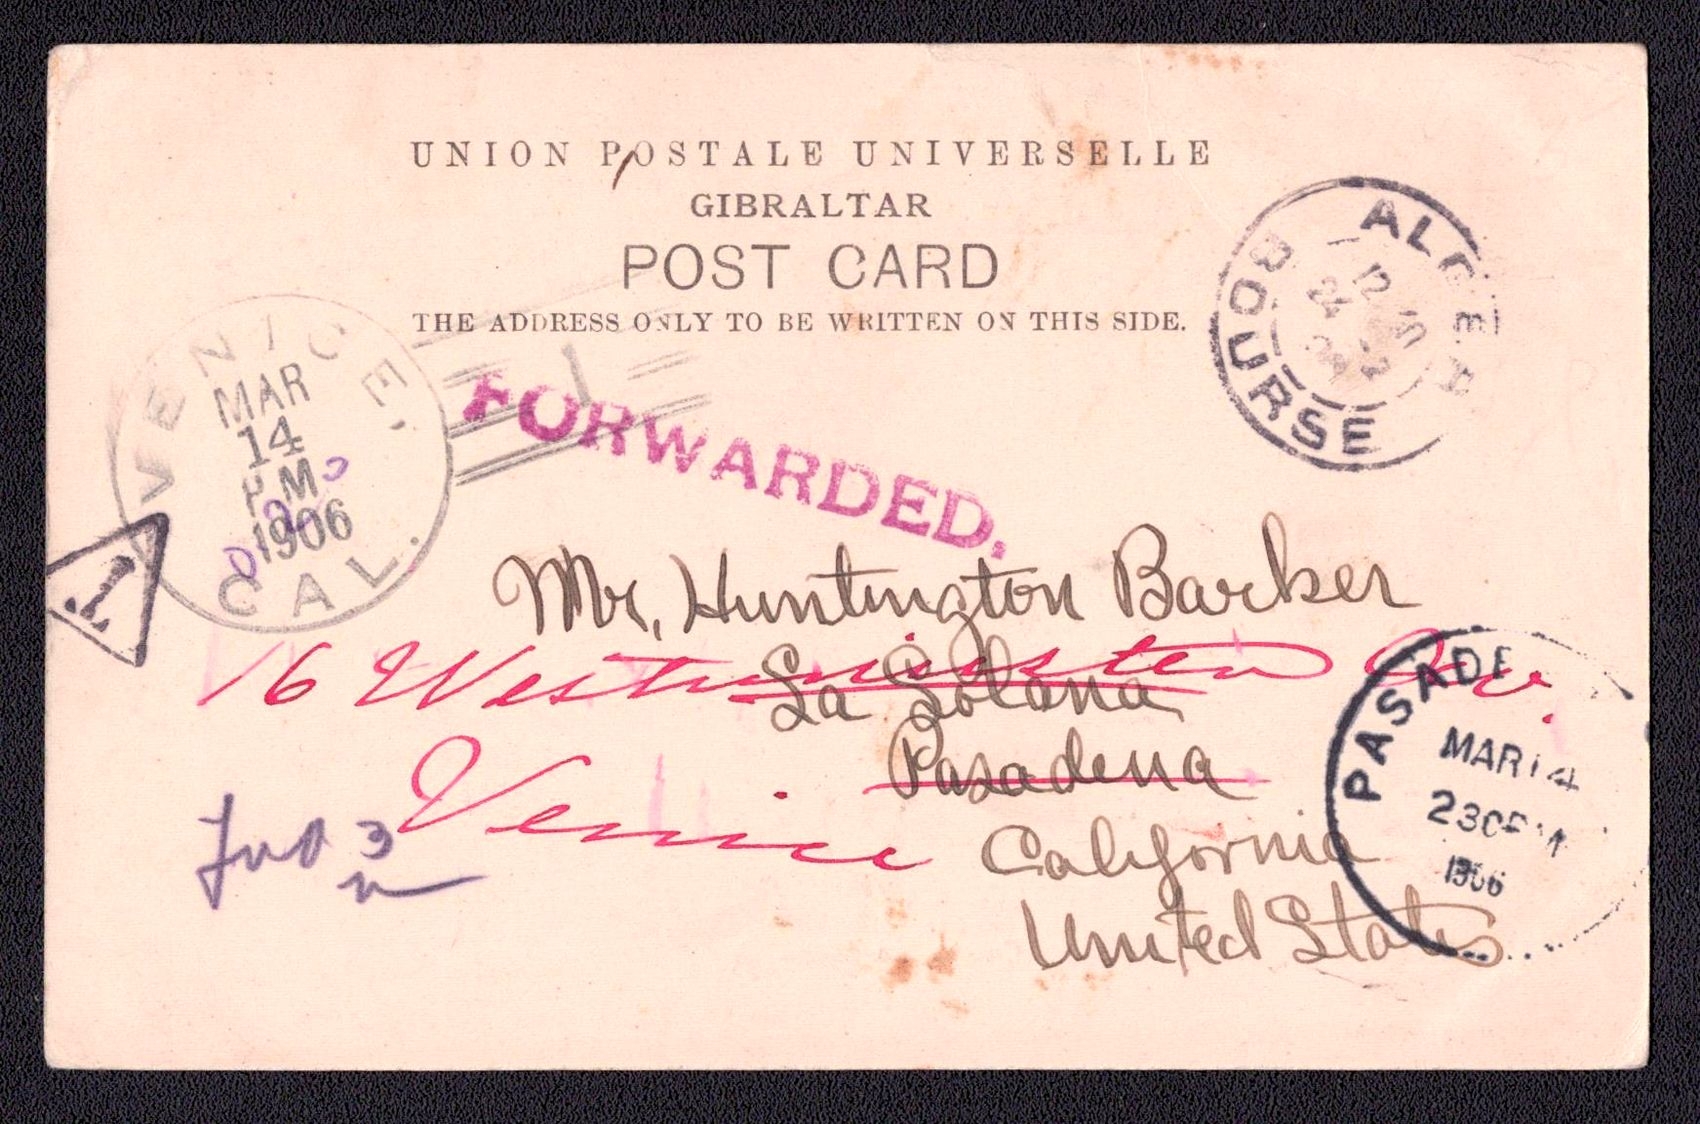 UNION POSTALE UNIVERSELLE
GIBRALTAR
POST CARD
THE ADDRESS ONLY TO BE WRITTEN ON THIS SIDE.
ALGER
BOURSE
12
24
VENICE,
MAR
14
PM
1906
CAL.
1
FORWARDED.
T
Mr, Huntington Barker
16 Westminster Av.
La Solana
Pasadena
Venice
California
United States
3
PASADE
MAR 14
230P M
1906